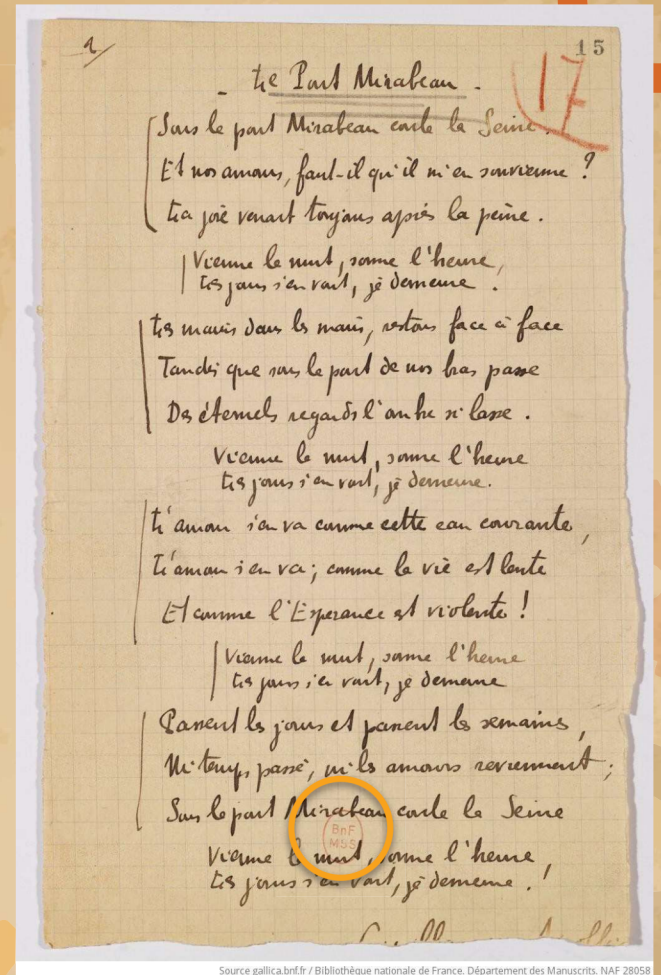 1/
15
17
_ Le Pont Mirabeau _
Sous le pont Mirabeau coule la Seine.
Et nos amours, faut-il qu'il m'en souvienne ?
La joie venait toujours après la peine.
Vienne la nuit, sonne l'heure,
Les jours s'en vont, je demeure.
Les mains dans les mains, restons face à face
Tandis que sous le pont de nos bras passe
Des éternels regards l'onde si lasse.
Vienne la nuit, sonne l'heure
Les jours s'en vont, je demeure.
L'amour s'en va comme cette eau courante,
L'amour s'en va; comme la vie est lente
Et comme l'Espérance est violente !
Vienne la nuit, sonne l'heure
Les jours s'en vont, je demeure
Passent les jours et passent les semaines,
Ni temps passé, ni les amours reviennent;
Sous le pont Mirabeau coule la Seine
BnF
MSS
Vienne la nuit, sonne l'heure,
Les jours s'en vont, je demeure !
Source gallica.bnf.fr / Bibliothèque nationale de France. Département des Manuscrits. NAF 28058